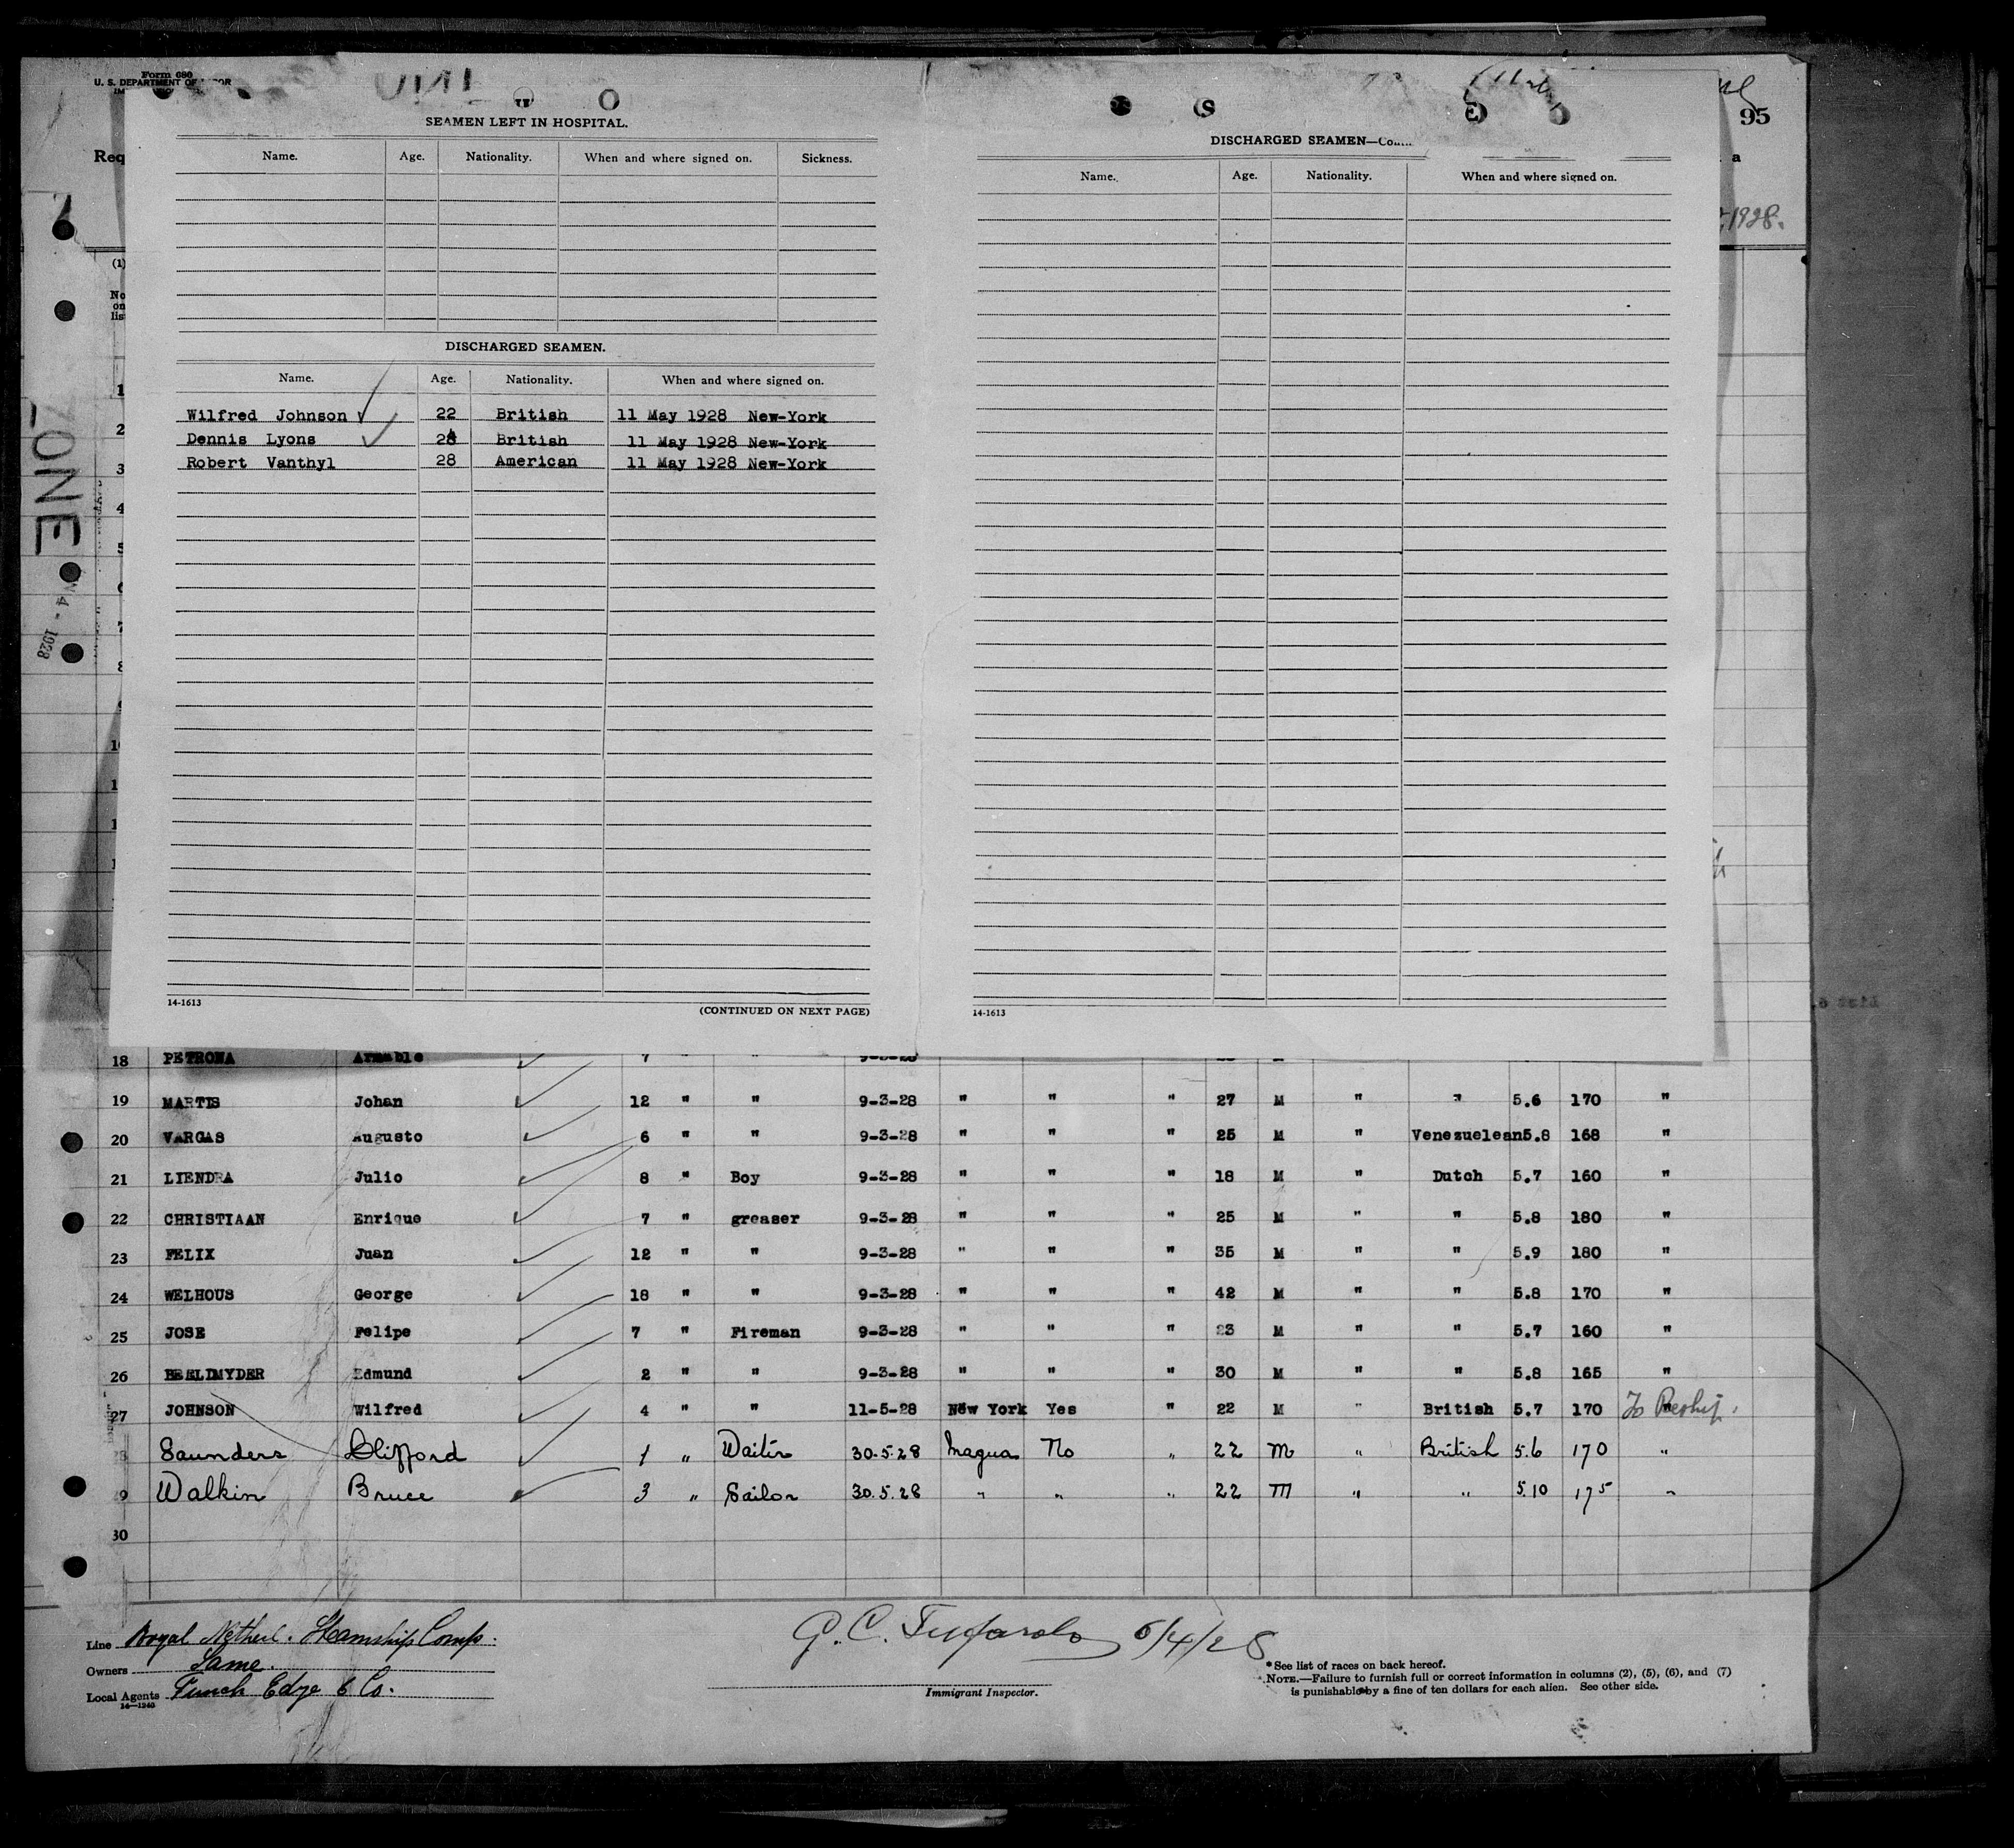 Form 680
U. S. DEPARTMENT OF
95
Req
a
1928.
SEAMEN LEFT IN HOSPITAL.
Name. Age. Nationality. When and where signed on. Sickness.
DISCHARGED SEAMEN.
Name. Age. Nationality. When and where signed on.
Wilfred Johnson 22 British 11 May 1928 New-York
Dennis Lyons British 11 May 1928 New-York
Robert Vanthyl 28 American 11 May 1928 New-York
14-1613
(CONTINUED ON NEXT PAGE)
DISCHARGED SEAMEN—
Name. Age. Nationality. When and where signed on.
14-1613
(1)
No
on
lis
1
2
3
4
5
ONE
4 - 1928
18 PETRONA Armable 7 " " 9-3-28
19 MARTIS Johan 12 " " 9-3-28 " " " 27 M " " 5.6 170 "
20 VARGAS Augusto 6 " " 9-3-28 " " " 25 M " Venezuelean 5.8 168 "
21 LIENDRA Julio 8 " Boy 9-3-28 " " " 18 M " Dutch 5.7 160 "
22 CHRISTIAAN Enrique 7 " greaser 9-3-28 " " " 25 M " " 5.8 180 "
23 FELIX Juan 12 " " 9-3-28 " " " 35 M " " 5.9 180 "
24 WELHOUS George 18 " " 9-3-28 " " " 42 M " " 5.8 170 "
25 JOSE Felipe 7 " Fireman 9-3-28 " " " 23 M " " 5.7 160 "
26 BEELDMYDER Edmund 2 " " 9-3-28 " " " 30 M " " 5.8 165 "
27 JOHNSON Wilfred 4 " " 11-5-28 New York Yes " 22 M " British 5.7 170 To Reship.
28 Saunders Clifford 1 " Waiter 30.5.28 Inagua No " 22 M " British 5.6 170 "
29 Walkin Bruce 3 " Sailor 30.5.28 " " " 22 M " " 5.10 175 "
30
Line Royal Netherl. Steamship Comp.
Owners Same.
Local Agents Funch Edye & Co.
14-1240
G. C. 6/4/28
Immigrant Inspector.
* See list of races on back hereof.
NOTE.—Failure to furnish full or correct information in columns (2), (5), (6), and (7)
is punishable by a fine of ten dollars for each alien. See other side.